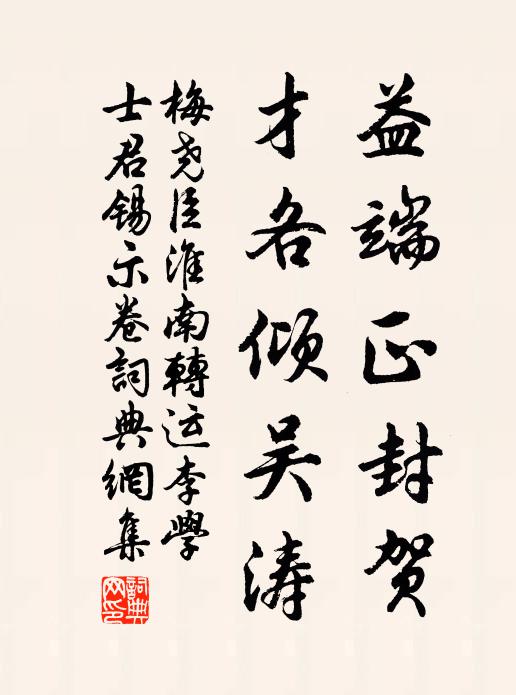 益端正封贺
才各倾吴涛
梅尧臣淮南轉运李學
士君锡示卷詞典網集
詞典网印